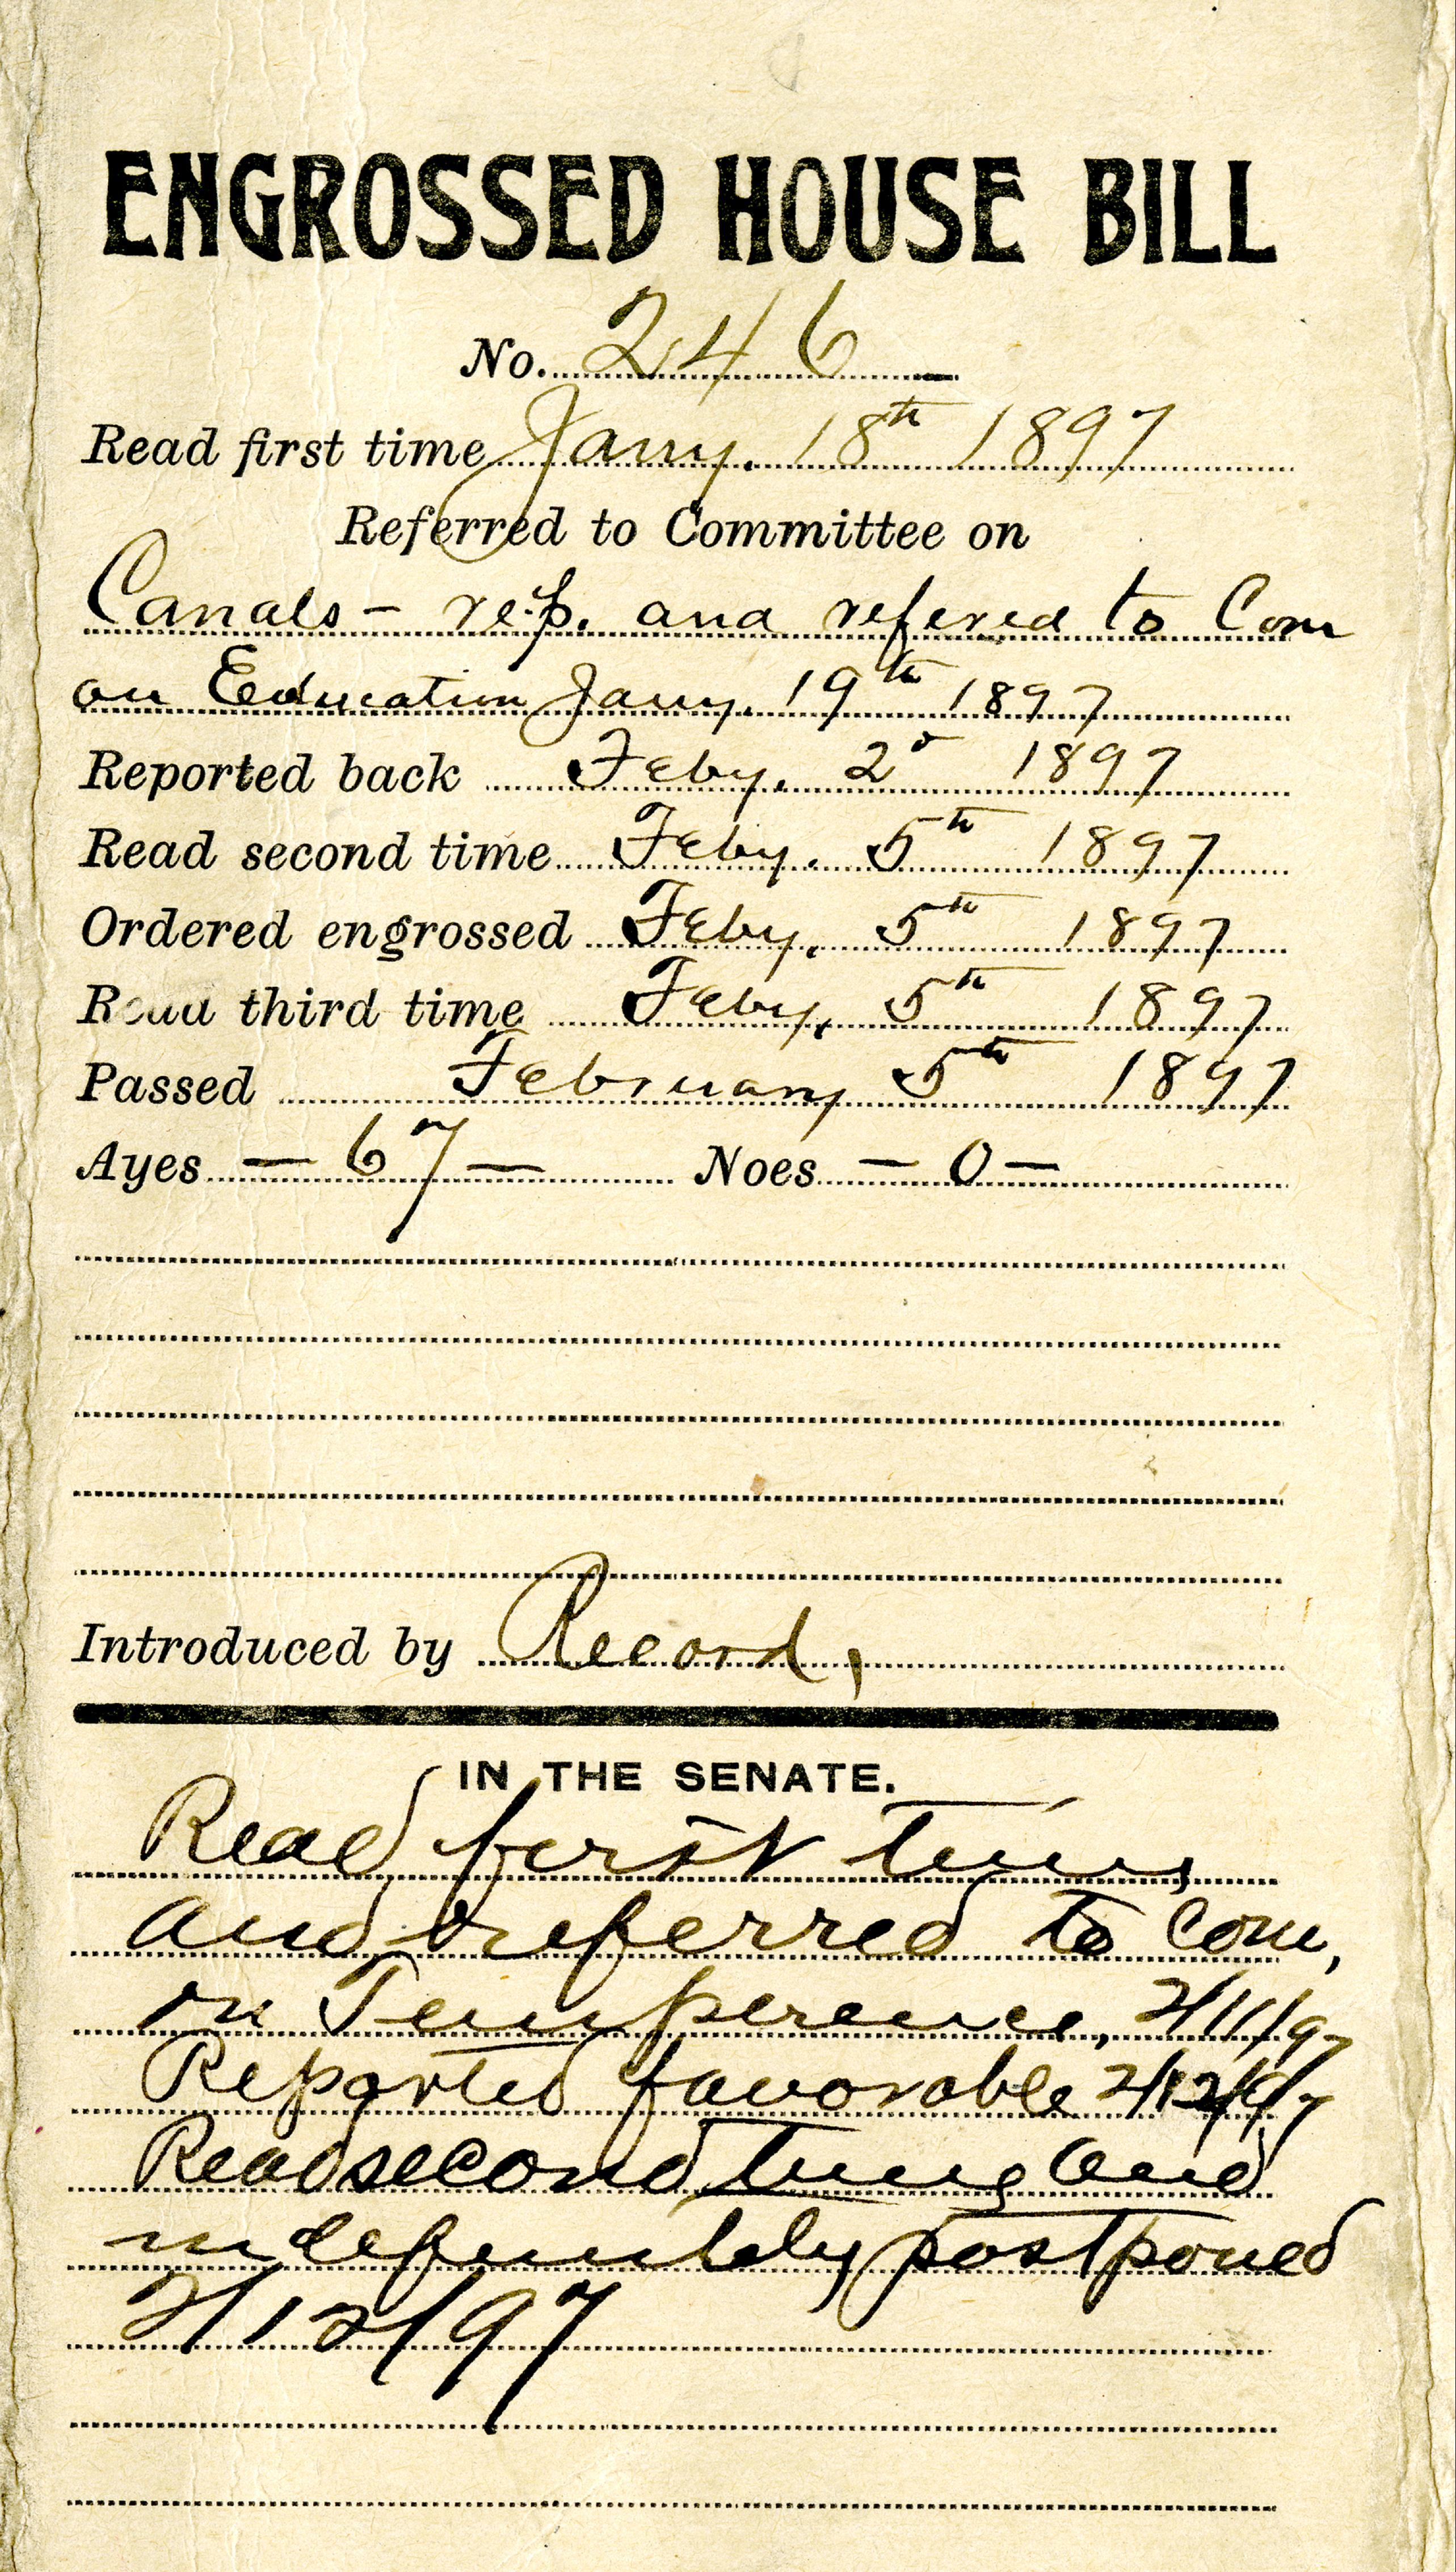 ENGROSSED HOUSE BILL
No. 246
Read first time Jany. 18th 1897
Referred to Committee on
Canals - rep. and refered to Com
on Education Jany. 19th 1897
Reported back Feby. 2d 1897
Read second time Feby. 5th 1897
Ordered engrossed Feby. 5th 1897
Read third time Feby. 5th 1897
Passed February 5th 1897
Ayes - 67 - Noes - 0 -
Introduced by Record,
IN THE SENATE.
Read first time,
and referred to Com,
on Temperence, 2/11/97
Reported favorable 2/12/97
Read second time and
indefinitely postponed
2/12/97